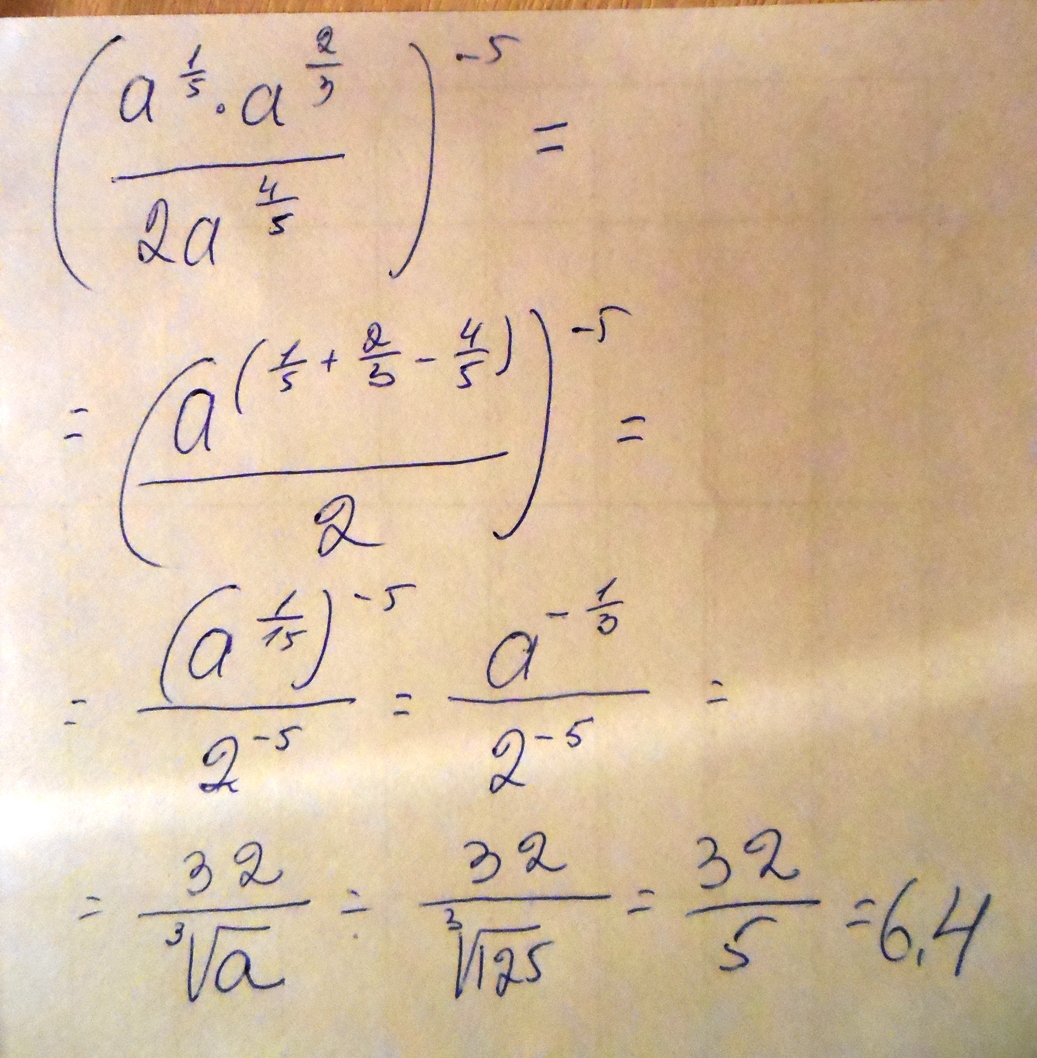 (a^(1/5) · a^(2/3) / 2a^(4/5))^(-5) =
= (a^(1/5 + 2/3 - 4/5) / 2)^(-5) =
= (a^(1/15))^(-5) / 2^(-5) = a^(-1/3) / 2^(-5) =
= 32 / ³√a = 32 / ³√125 = 32 / 5 = 6,4